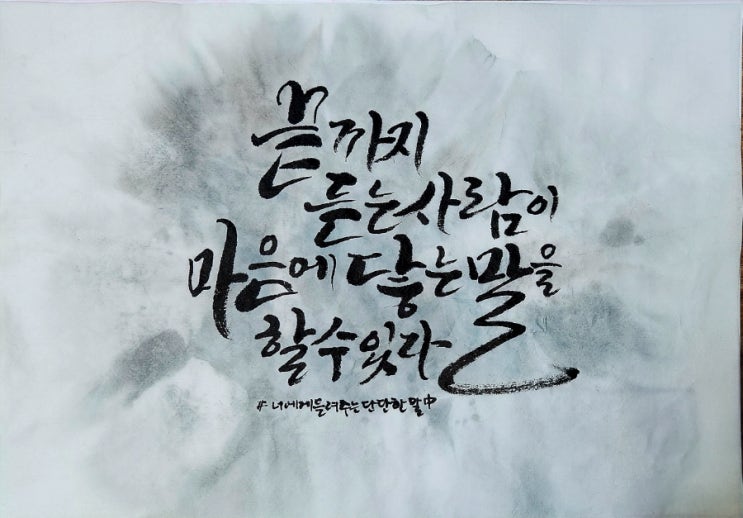 끝까지
듣는 사람이
마음에 닿는 말을
할 수 있다
# 너에게 들려주는 단단한 말 中